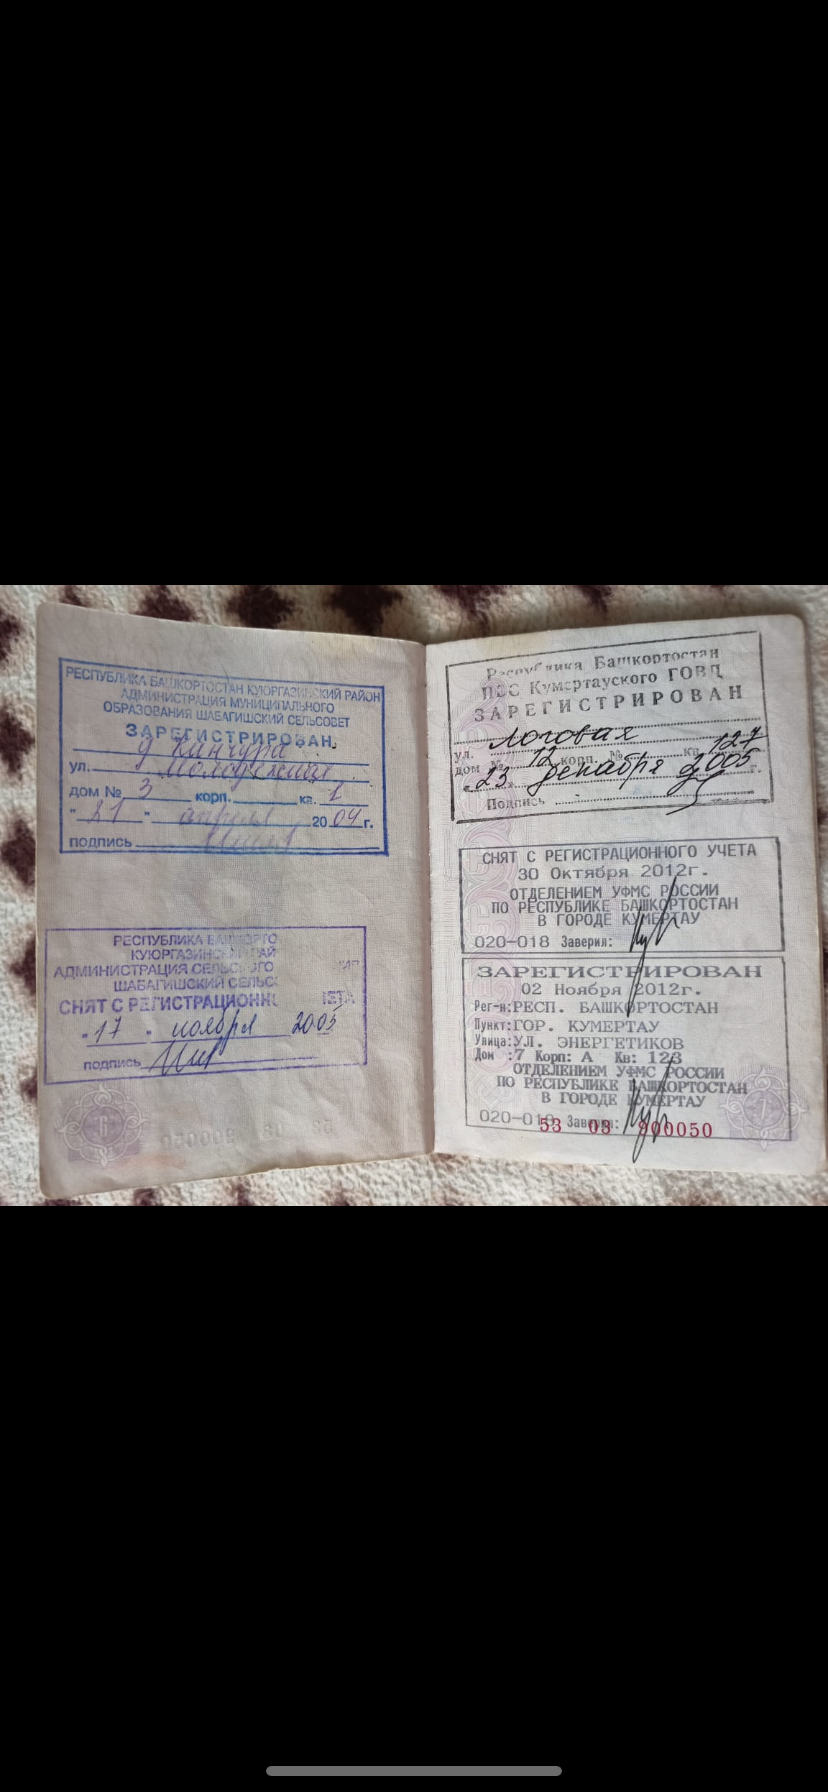 РЕСПУБЛИКА БАШКОРТОСТАН КУЮРГАЗИНСКИЙ РАЙОН
АДМИНИСТРАЦИЯ МУНИЦИПАЛЬНОГО
ОБРАЗОВАНИЯ ШАБАГИШСКИЙ СЕЛЬСОВЕТ
ЗАРЕГИСТРИРОВАН
д Канчура
ул. Молодежная
дом № 3 корп. кв. 1
"21" апреля 2004 г.
подпись
РЕСПУБЛИКА БАШКОРТО
КУЮРГАЗИНСКИЙ РАЙ
АДМИНИСТРАЦИЯ СЕЛЬСКОГО
ШАБАГИШСКИЙ СЕЛЬС
СНЯТ С РЕГИСТРАЦИОНН ЧЕТА
"17" ноября 2005
подпись
6
Республика Башкортостан
ПВС Кумертауского ГОВД
ЗАРЕГИСТРИРОВАН
ул. Логовая
дом № 12 корп. № кв. 127
"23" декабря 2005 г.
Подпись
СНЯТ С РЕГИСТРАЦИОННОГО УЧЕТА
30 Октября 2012г.
ОТДЕЛЕНИЕМ УФМС РОССИИ
ПО РЕСПУБЛИКЕ БАШКОРТОСТАН
В ГОРОДЕ КУМЕРТАУ
020-018 Заверил:
ЗАРЕГИСТРИРОВАН
02 Ноября 2012г.
Рег-н:РЕСП. БАШКОРТОСТАН
Пункт:ГОР. КУМЕРТАУ
Улица:УЛ. ЭНЕРГЕТИКОВ
Дом :7 Корп: А Кв: 123
ОТДЕЛЕНИЕМ УФМС РОССИИ
ПО РЕСПУБЛИКЕ БАШКОРТОСТАН
В ГОРОДЕ КУМЕРТАУ
020-018 Заверил:
53 03 900050
7